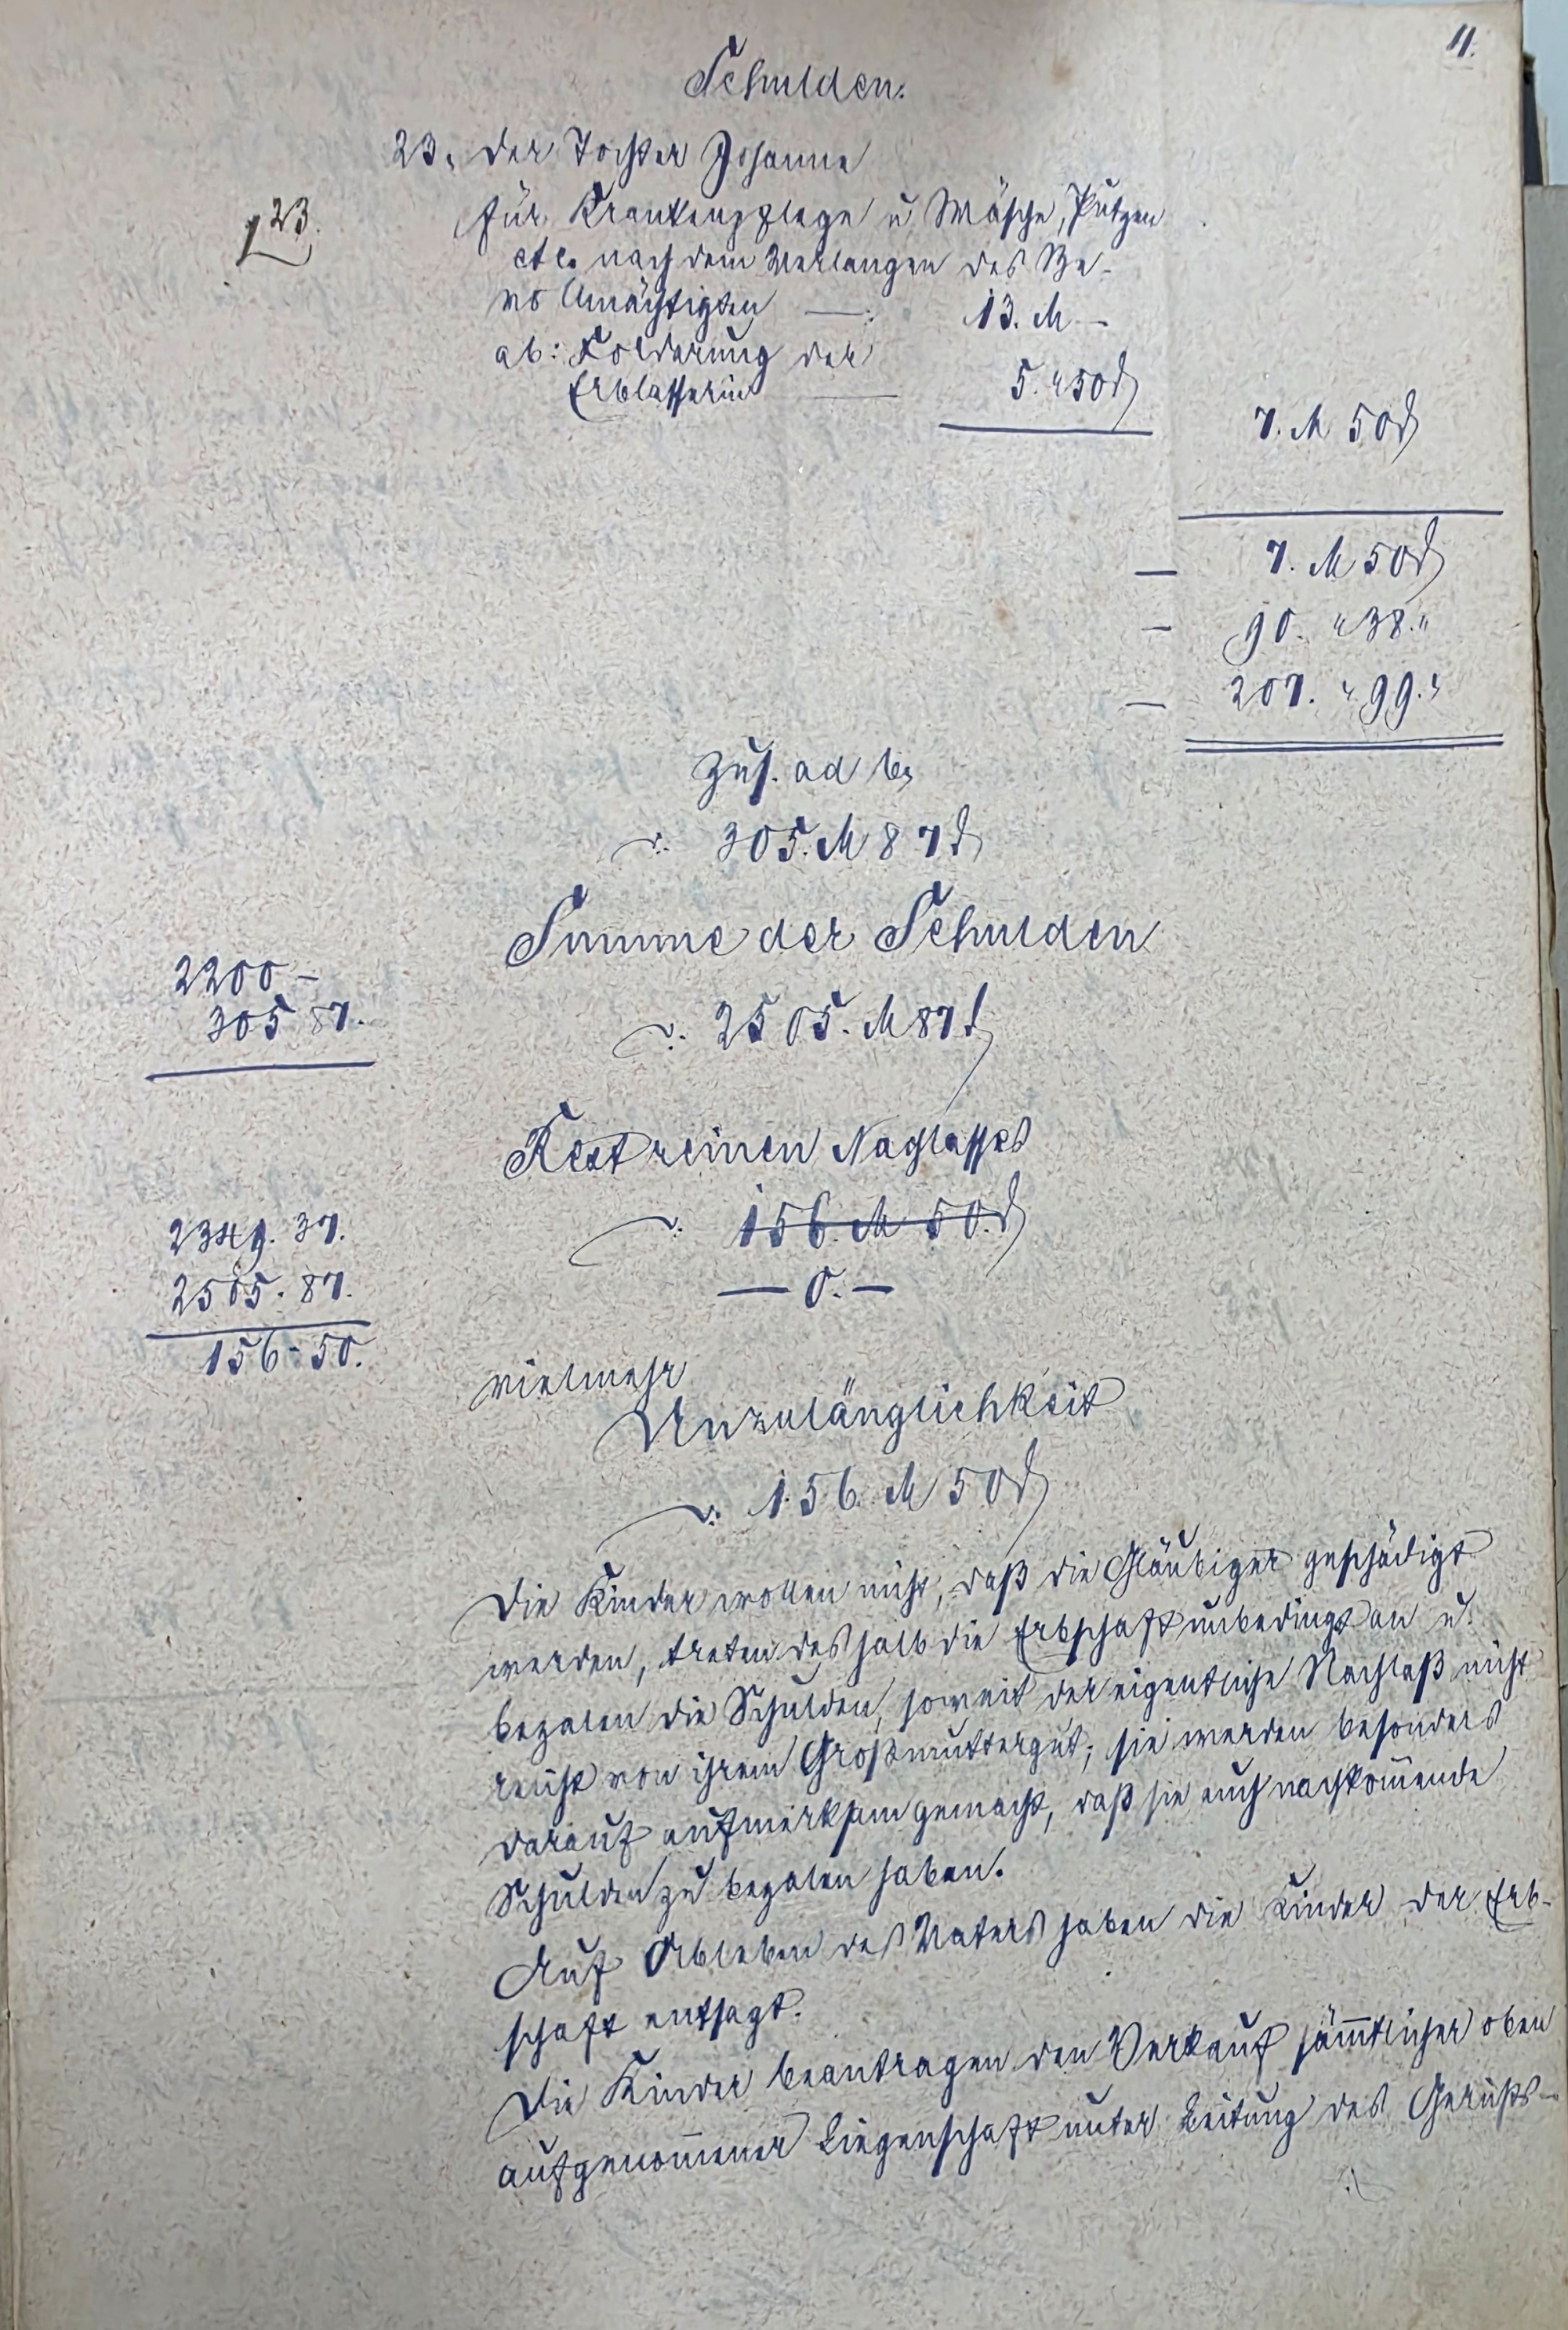 11.
Schulden.
23. der Tochter Johanne
23.
für Krankenpflege u Wäsche, Putzen
etc. nach dem Verlangen des Be-
vollmächtigten — : 13. M —
ab: Forderung der
Erblasserin — 5. " 50 ₰
7. M 50 ₰
— 7. M 50 ₰
— 90. " 38. "
— 207. " 99. "
Zus. ad b,
: 305. M 87 ₰
Summe der Schulden
2200 —
305 87.
: 2505. M 87 ₰
Rest reinen Nachlasses
: 156. M 50. ₰
2349. 37.
2505. 87.
156 - 50.
— 0. —
vielmehr
Unzulänglichkeit
: 156. M 50 ₰
Die Kinder wollen nicht, daß die Gläubiger geschädigt
werden, treten deshalb die Erbschaft unbedingt an u.
bezalen die Schulden, soweit der eigentliche Nachlaß nicht
reicht von ihrem Großmuttergut; sie werden besonders
darauf aufmerksam gemacht, daß sie auch nachkom̄ende
Schulden zu bezalen haben.
Auf Ableben des Vaters haben die Kinder der Erb-
schaft entsagt.
Die Kinder beantragen den Verkauf säm̄tlicher oben
aufgenom̄ener Liegenschaft unter Leitung des Gerichts-